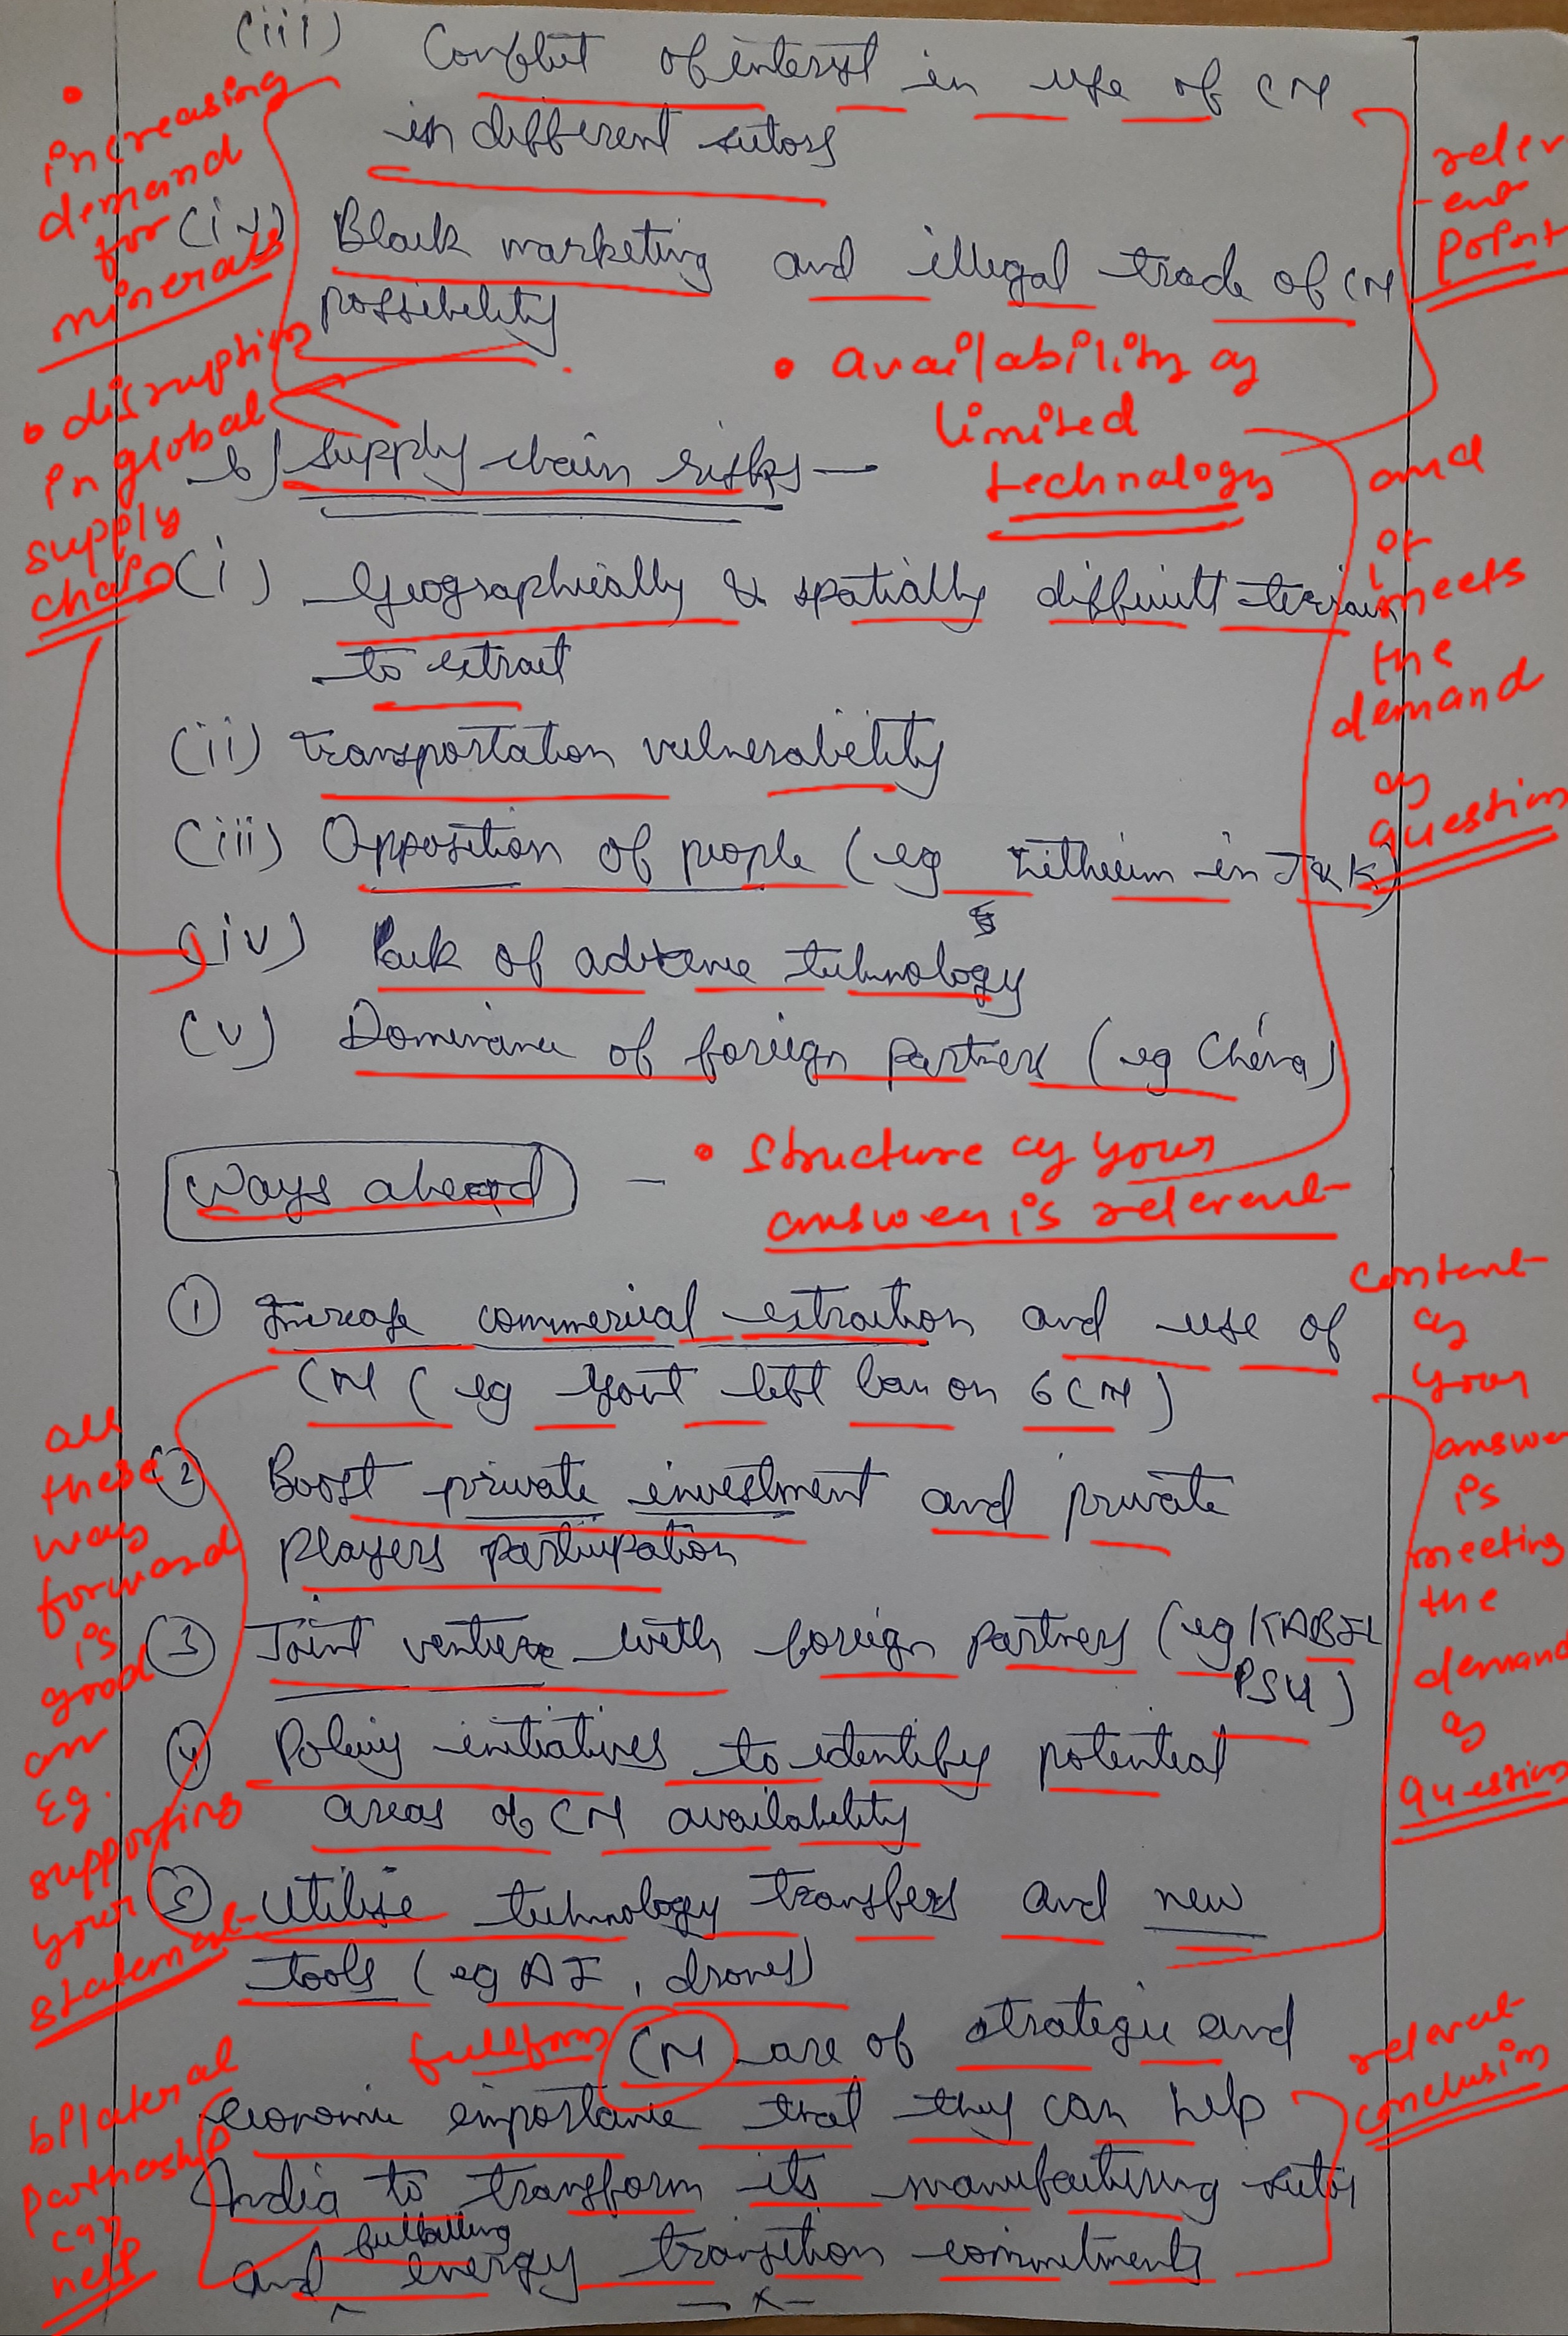 (iii) Conflict of interest in use of CM
in different sectors
• increasing
demand
for
minerals
relev
-ent
point
(iv) Black marketing and illegal trade of CM
possibility
• disruption
in global
supply
chain
• availability of
limited
technology
b) Supply chain risks —
and
it
meets
the
demand
of
question
(i) Geographically & spatially difficult terrain
to extract
(ii) Transportation vulnerability
(iii) Opposition of people (eg Lithium in J&K)
(iv) Lack of advance technology
(v) Dominance of foreign partners (eg China)
Ways ahead —
• Structure of your
answer is relevent
① Increase commercial extraction and use of
CM (eg Govt left ban on 6 CM)
content
of
your
answer
is
meeting
the
demand
of
question
② Boost private investment and private
players participation
③ Joint venture with foreign partners (eg KABIL
PSU)
④ Policy initiatives to identify potential
areas of CM availability
⑤ Utilise technology transfers and new
tools (eg AI, drones)
all
these
way
forward
is
good
an
Eg.
supporting
your
statement
fullform
CM are of strategic and
economic importance that they can help
India to transform its manufacturing sector
and fulfilling energy transition commitments
— x —
relevent
conclusion
bilateral
partnership
can
help